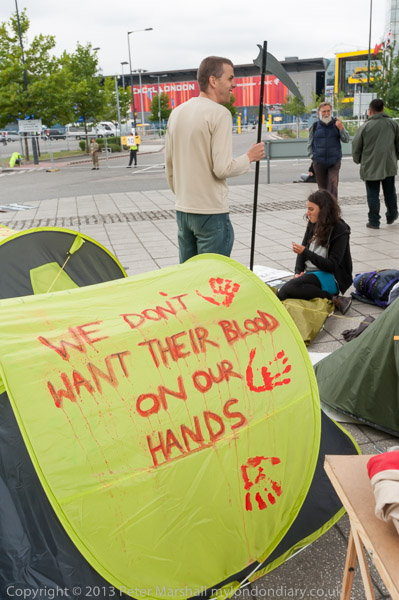 EXCEL LONDON
WE DON'T
WANT THEIR BLOOD
ON OUR
HANDS
Copyright © 2013 Peter Marshall mylondondiary.co.uk